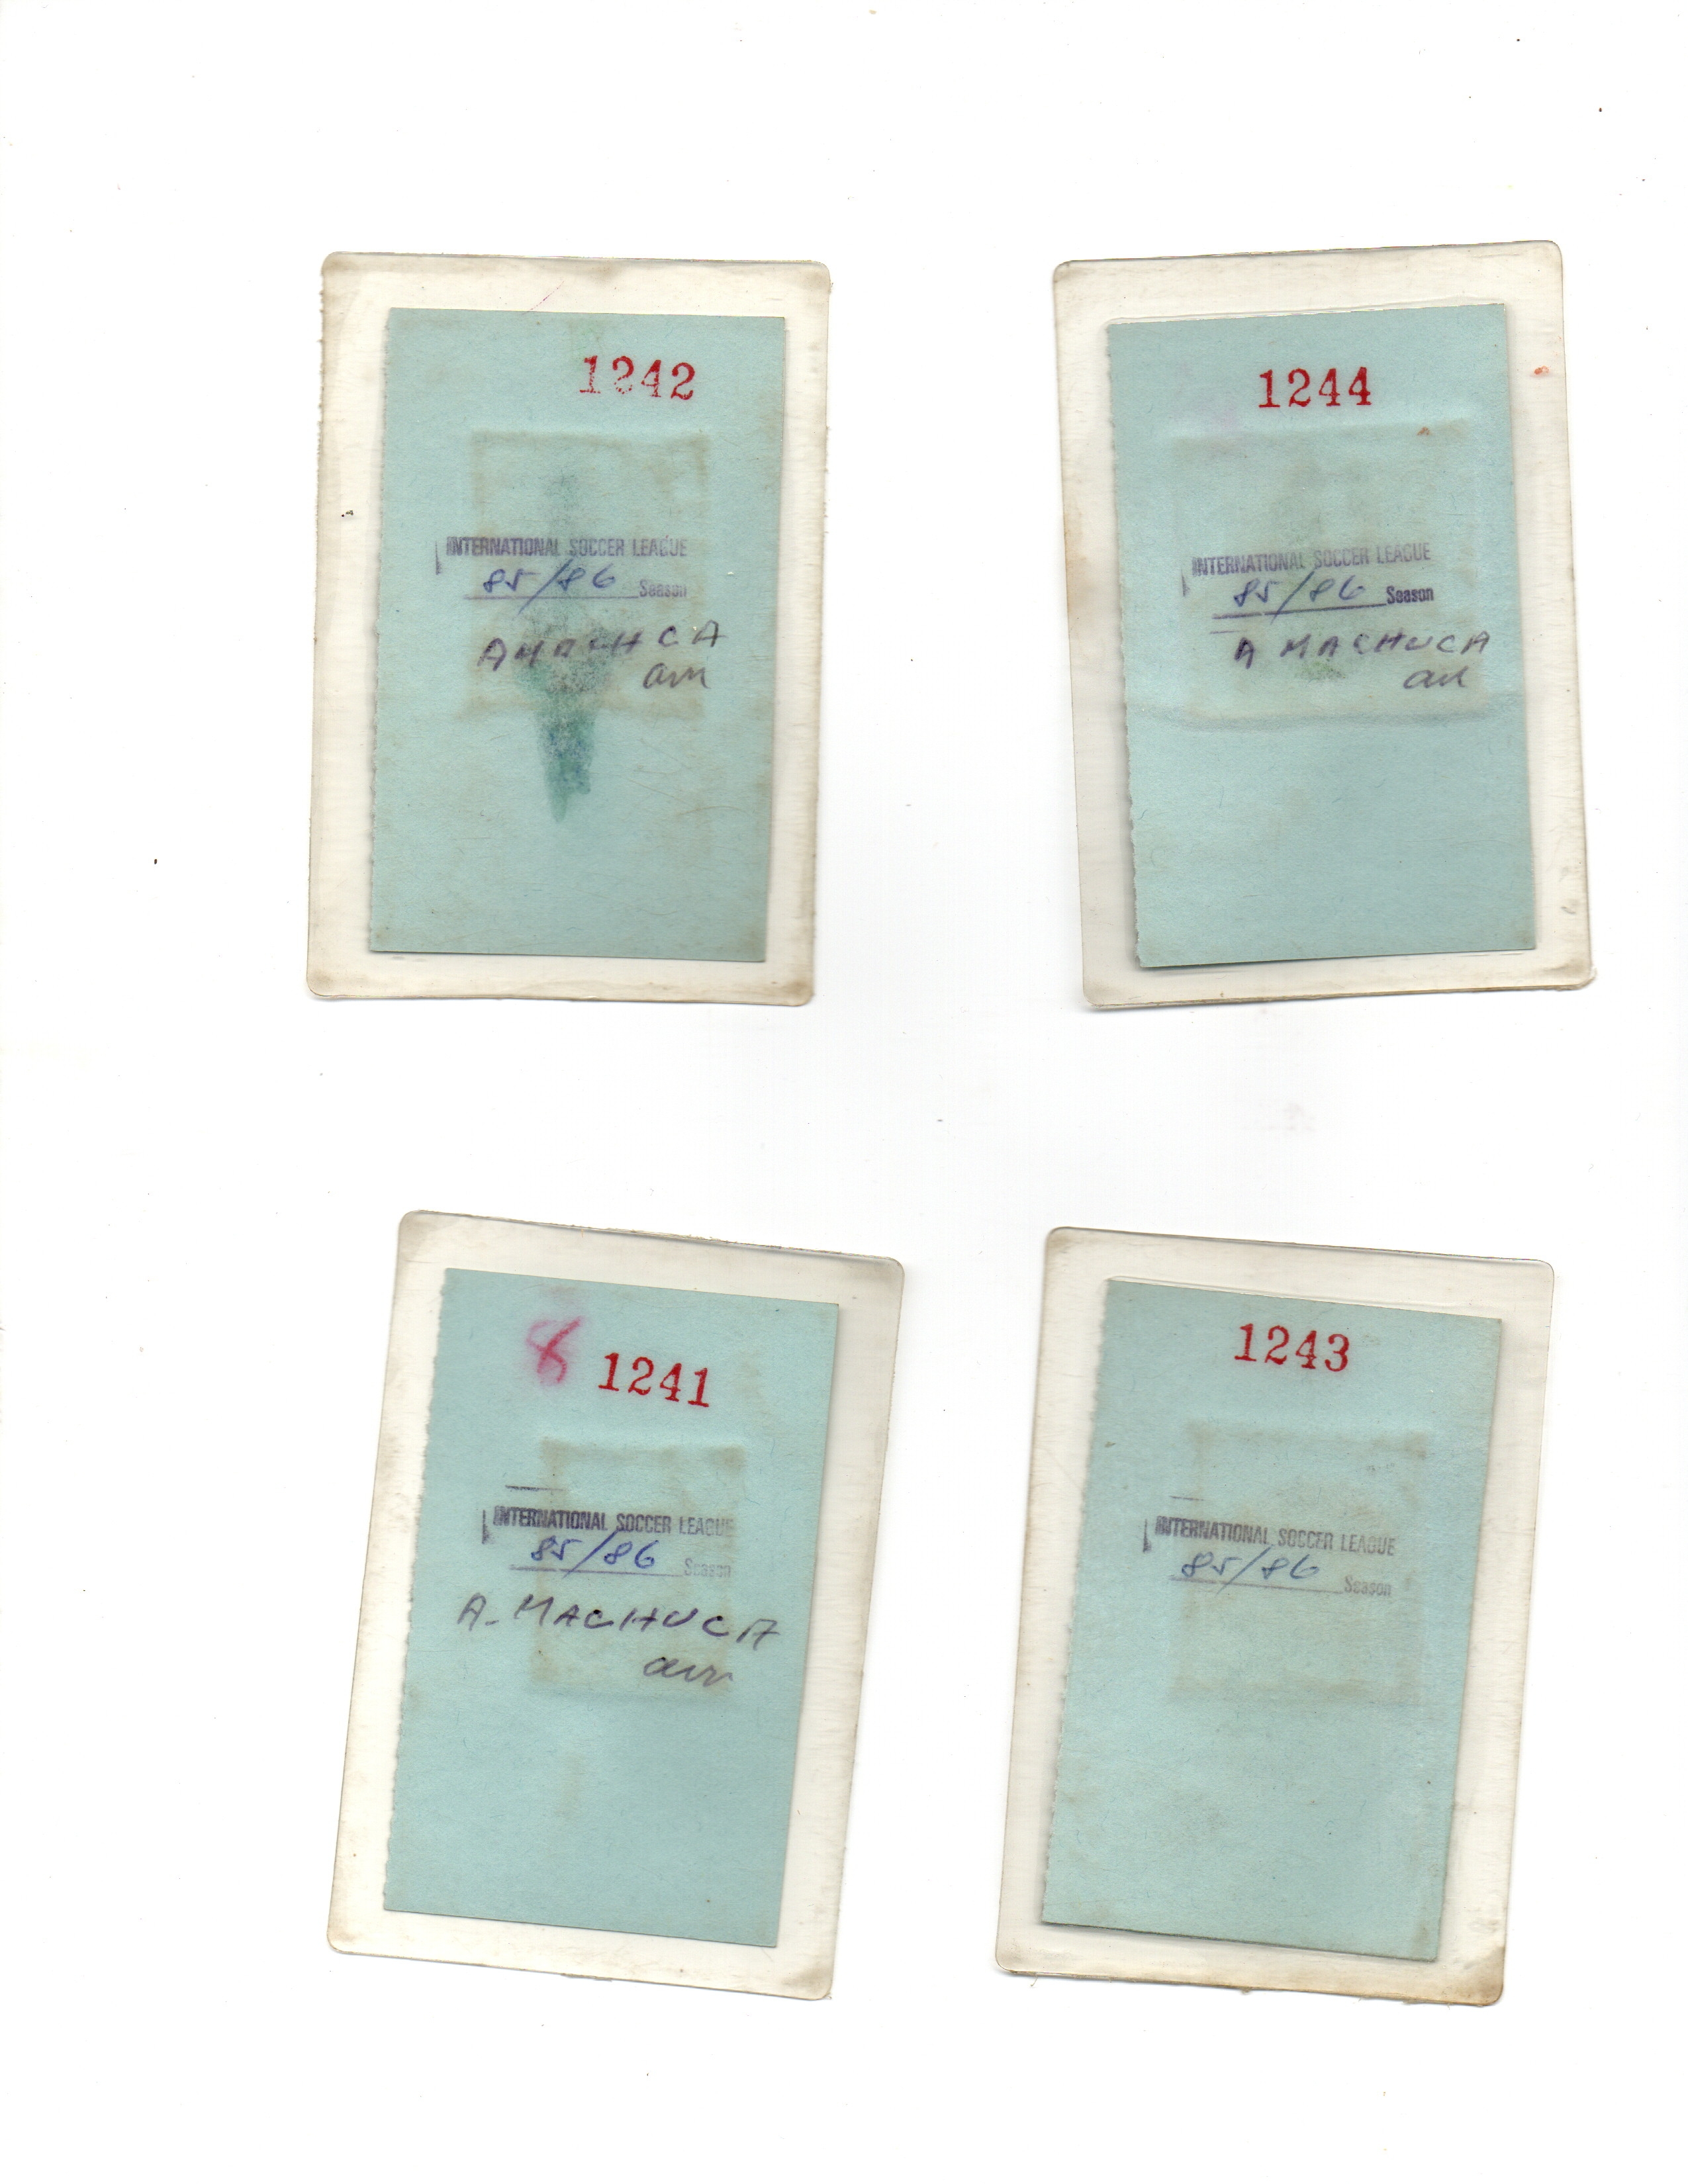 1242
INTERNATIONAL SOCCER LEAGUE
85/86 Season
A MACHUCA
am
1244
INTERNATIONAL SOCCER LEAGUE
85/86 Season
A MACHUCA
am
8 1241
INTERNATIONAL SOCCER LEAGUE
85/86 Season
A. MACHUCA
am
1243
INTERNATIONAL SOCCER LEAGUE
85/86 Season